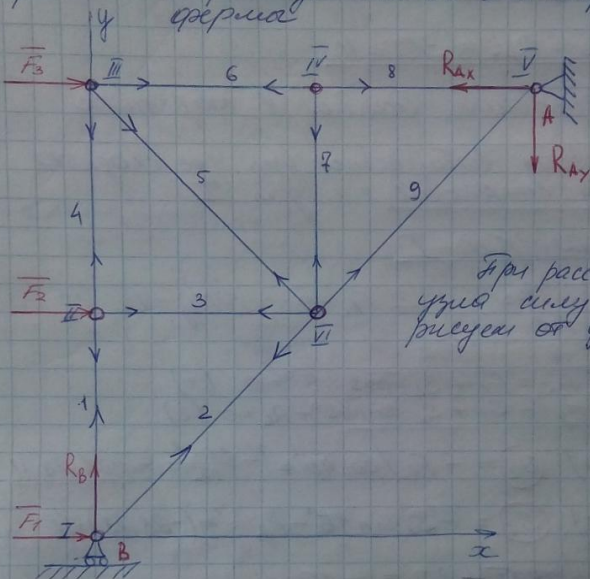 y ферма
F3 III 6 IV 8 RAX V
A
RAY
5 7 9
4
F2 II 3 VI
При расс
узла силу
рисуем от
1 2
RB
F1 I B x